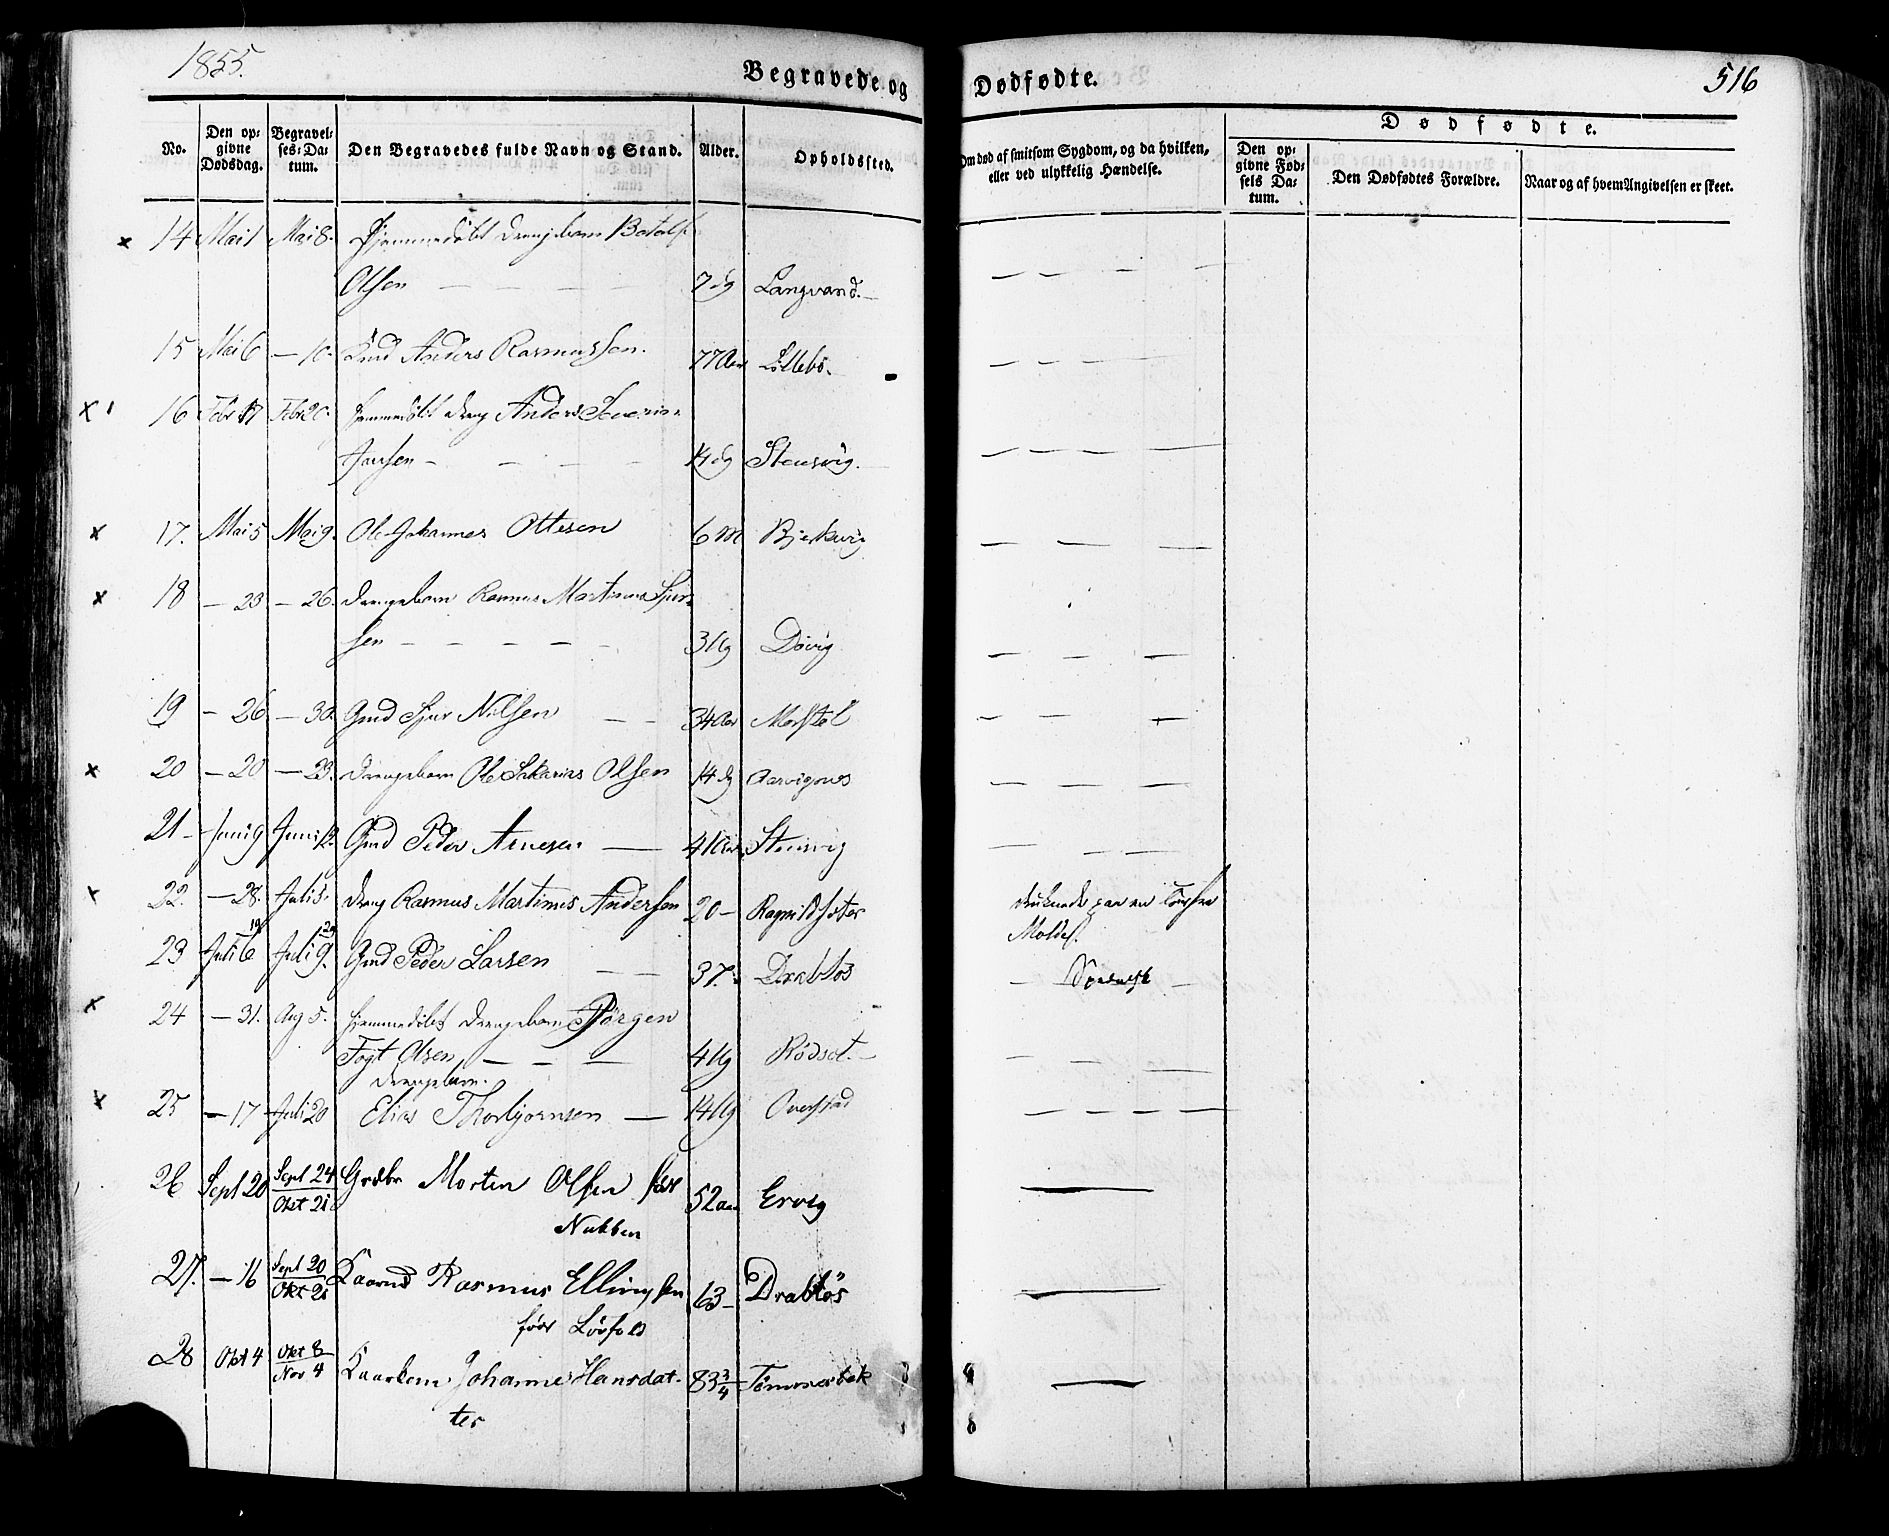 1855.
Begravede og Dødfødte.
516
No. Den opgivne Dødsdag. Begravelses-Datum. Den Begravedes fulde Navn og Stand. Alder. Opholdssted. Om død af smitsom Sygdom, og da hvilken, eller ved ulykkelig Hændelse. Dødfødte. Den opgivne Fødsels Datum. Den Dødfødtes Forældre. Naar og af hvem Angivelsen er skeet.
× 14 Mai 1 Mai 8. Hjemmedøbt Drengebarn Botolf
Olsen — — — — 7 dg Langvand. — — — —
15 Mai 6 — 10. Anders Rasmussen. 77 Aar Lillebø. — — — —
× 16 Febr 17 Febr 20. hjemmedøbt Dreng Anders Severin
Jansen — — — — 14 dg Stensvig. — — — —
× 17. Mai 5 Mai 9. Ole Johannes Ottesen 6 M Bjerkevig — — —
× 18 — 23 — 26. Drengebarn Rasmus Martinus Sjur-
sen — — — — — 3 Ug Døvig — — —
19 — 26 — 30. Gmd Sjur Nilsen — — 34 Aar Morstøl — — —
× 20 — 20 — 23. Drengebarn Ole Sakarias Olsen 14 dg Aarvignes — — —
21 — Juni 9 Juni 12. Gmd Peder Arnesen — 41 Aar Stensvig — — — —
× 22. — 28. Juli 3. Dreng Rasmus Martinus Andersen 20 — Ragnildsæter druknede paa en Tour fra
Molde.
19 29
23 Juli 6 Juli 9. Gmd Peder Larsen — — 37. Drabløs — —
× 24 — 31. Aug 5. hjemmedøbt Drengebarn Jørgen
Fogt Olsen — — — 4 Ug Rødset. — — — —
Drengebarn.
× 25 — 17 Juli 20 Elias Thorbjørnsen — 14 Ug Overstad — — — —
26 Sept 20 Sept 24 Okt 21 Grdbr Morten Olsen før 52 Aar Ervig —
Nubben
27. — 16 Sept 20 Okt 21 Kaarmd Rasmus Ellingsen 63 — Drabløs —
før Løvfold
28 Okt 4 Okt 8 Nov 4 Kaarkone Johanne Hansdat- 83 3/4 Tømmerbek —
ter